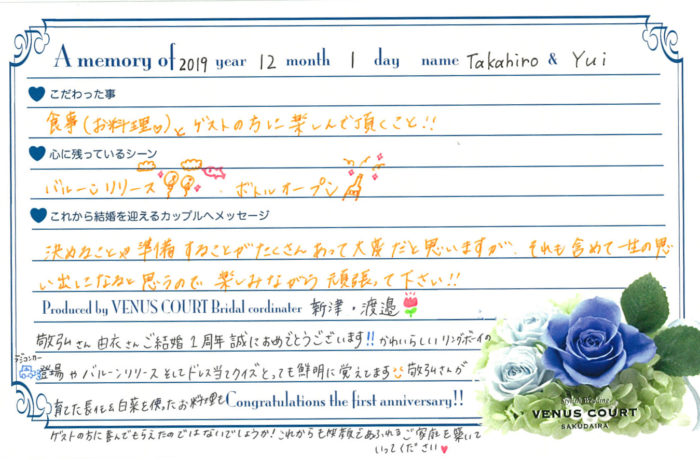 A memory of 2019 year 12 month 1 day name Takahiro & Yui
こだわった事
食事(お料理♡)とゲストの方に楽しんで頂くこと!!
心に残っているシーン
バルーンリリース ・ ボトルオープン
これから結婚を迎えるカップルへメッセージ
決めることや準備することがたくさんあって大変だと思いますが、それも含めて一生の思
い出になると思うので楽しみながら頑張って下さい!!
Produced by VENUS COURT Bridal cordinater 新津・渡邉
敬弘さん 由衣さんご結婚1周年誠におめでとうございます!! かわいらしいリングボーイの
ラジコンカー
登場やバルーンリリースそしてドレス当てクイズとっても鮮明に覚えてます 敬弘さんが
育てた長化&白菜を使ったお料理も Congratulations the first anniversary!!
ゲストの方に喜んでもらえたのではないでしょうか! これからも笑顔であふれるご家庭を築いて
いってください♥
Style & Wedding
VENUS COURT
SAKUDAIRA